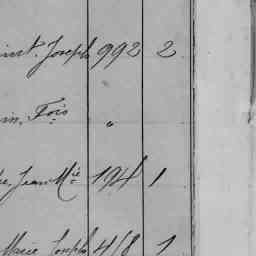 Joseph 992 2
Fois "
Jean Mie 194 1
Marie Joseph 418 1